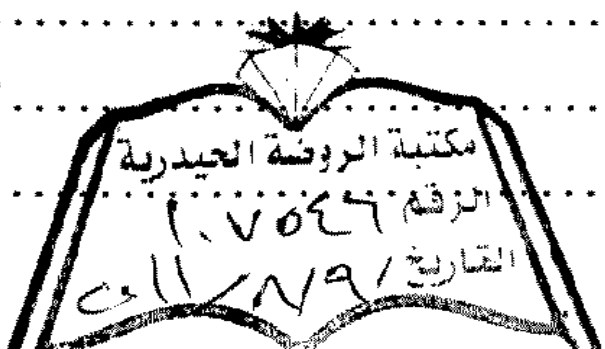 مكتبة الروضة الحيدرية
الرقم ١٠٧٥٤٦
التاريخ / ١١/٨/٩